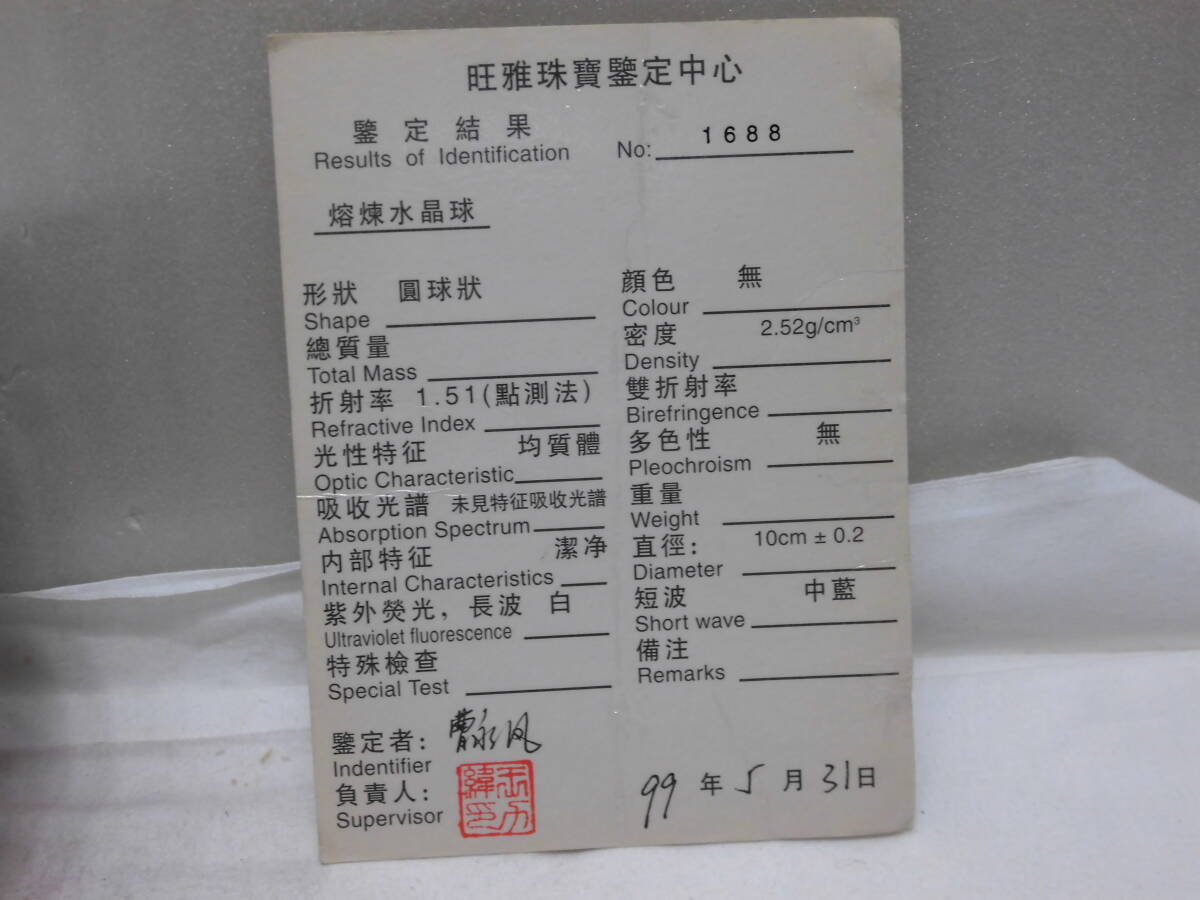 旺雅珠寶鑒定中心
鑒定結果
Results of Identification
No: 1688
熔煉水晶球
形狀 圓球狀
Shape
總質量
Total Mass
折射率 1.51(點測法)
Refractive Index
光性特征 均質體
Optic Characteristic
吸收光譜 未見特征吸收光譜
Absorption Spectrum
内部特征 潔净
Internal Characteristics
紫外熒光, 長波 白
Ultraviolet fluorescence
特殊檢查
Special Test
顔色 無
Colour
密度 2.52g/cm³
Density
雙折射率
Birefringence
多色性 無
Pleochroism
重量
Weight
直徑: 10cm ± 0.2
Diameter
短波 中藍
Short wave
備注
Remarks
鑒定者:
Indentifier
負責人:
Supervisor
99 年 5 月 31 日